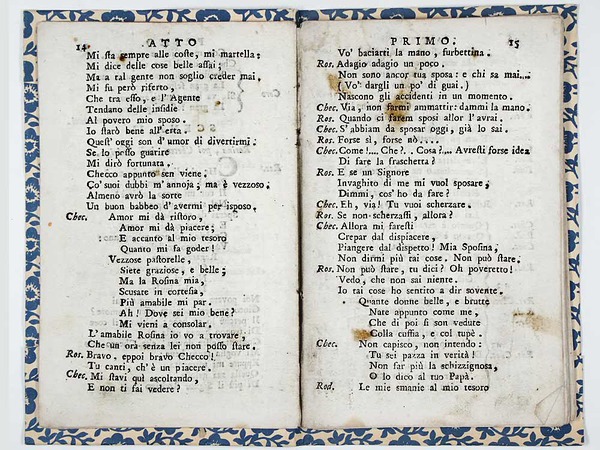 14 ATTO
Mi sta sempre alle coste, mi martella:
Mi dice delle cose belle assai;
Ma a tal gente non soglio creder mai.
Mi fu però riferito,
Che tra esso, e l'Agente
Tendano delle insidie
Al povero mio sposo.
Io starò bene all'erta.
Quest'oggi son d'umor di divertirmi.
Se lo posso guarire
Mi dirò fortunata.
Checco appunto sen viene.
Co' suoi dubbi m'annoja; ma è vezzoso.
Almeno avrò la sorte
Un buon babbeo d'avermi per isposo.
Chec. Amor mi dà ristoro,
Amor mi dà piacere;
E accanto al mio tesoro
Quanto mi fa goder!
Vezzose pastorelle,
Siete graziose, e belle;
Ma la Rosina mia,
Scusate in cortesia,
Più amabile mi par.
Ah! Dove sei mio bene?
Mi vieni a consolar.
L'amabile Rosina io vo a trovare,
Che un ora senza lei non posso stare.
Ros. Bravo, eppoi bravo Checco!
Tu canti, ch'è un piacere.
Chec. Mi stavi quì ascoltando,
E non ti fai vedere?
PRIMO. 15
Vo' baciarti la mano, furbettina.
Ros. Adagio adagio un poco.
Non sono ancor tua sposa: e chi sa mai....
( Vo' dargli un po' di guai. )
Nascono gli accidenti in un momento.
Chec. Via, non farmi ammattir: dammi la mano.
Ros. Quando ci sarem sposi allor l'avrai.
Chec. S'abbiam da sposar oggi, già lo sai.
Ros. Forse sì, forse nò....
Chec. Come!.... Che?.. Cosa?... Avresti forse idea
Di fare la fraschetta?
Ros. E se un Signore
Invaghito di me mi vuol sposare;
Dimmi, cos'ho da fare?
Chec. Eh, via! Tu vuoi scherzare.
Ros. Se non scherzassi, allora?
Chec. Allora mi faresti
Crepar dal dispiacere,
Piangere dal dispetto! Mia Sposina,
Non dirmi più tai cose. Non può stare.
Ros. Non può stare, tu dici? Oh poveretto!
Vedo, che non sai niente.
Io tai cose ho sentito a dir sovente.
Quante donne belle, e brutte
Nate appunto come me,
Che di poi si son vedute
Colla cuffia, e col tupè.
Chec. Non capisco, non intendo:
Tu sei pazza in verità!
Non far più la schizzignosa,
O lo dico al tuo Papà.
Rod. Le mie smanie al mio tesoro